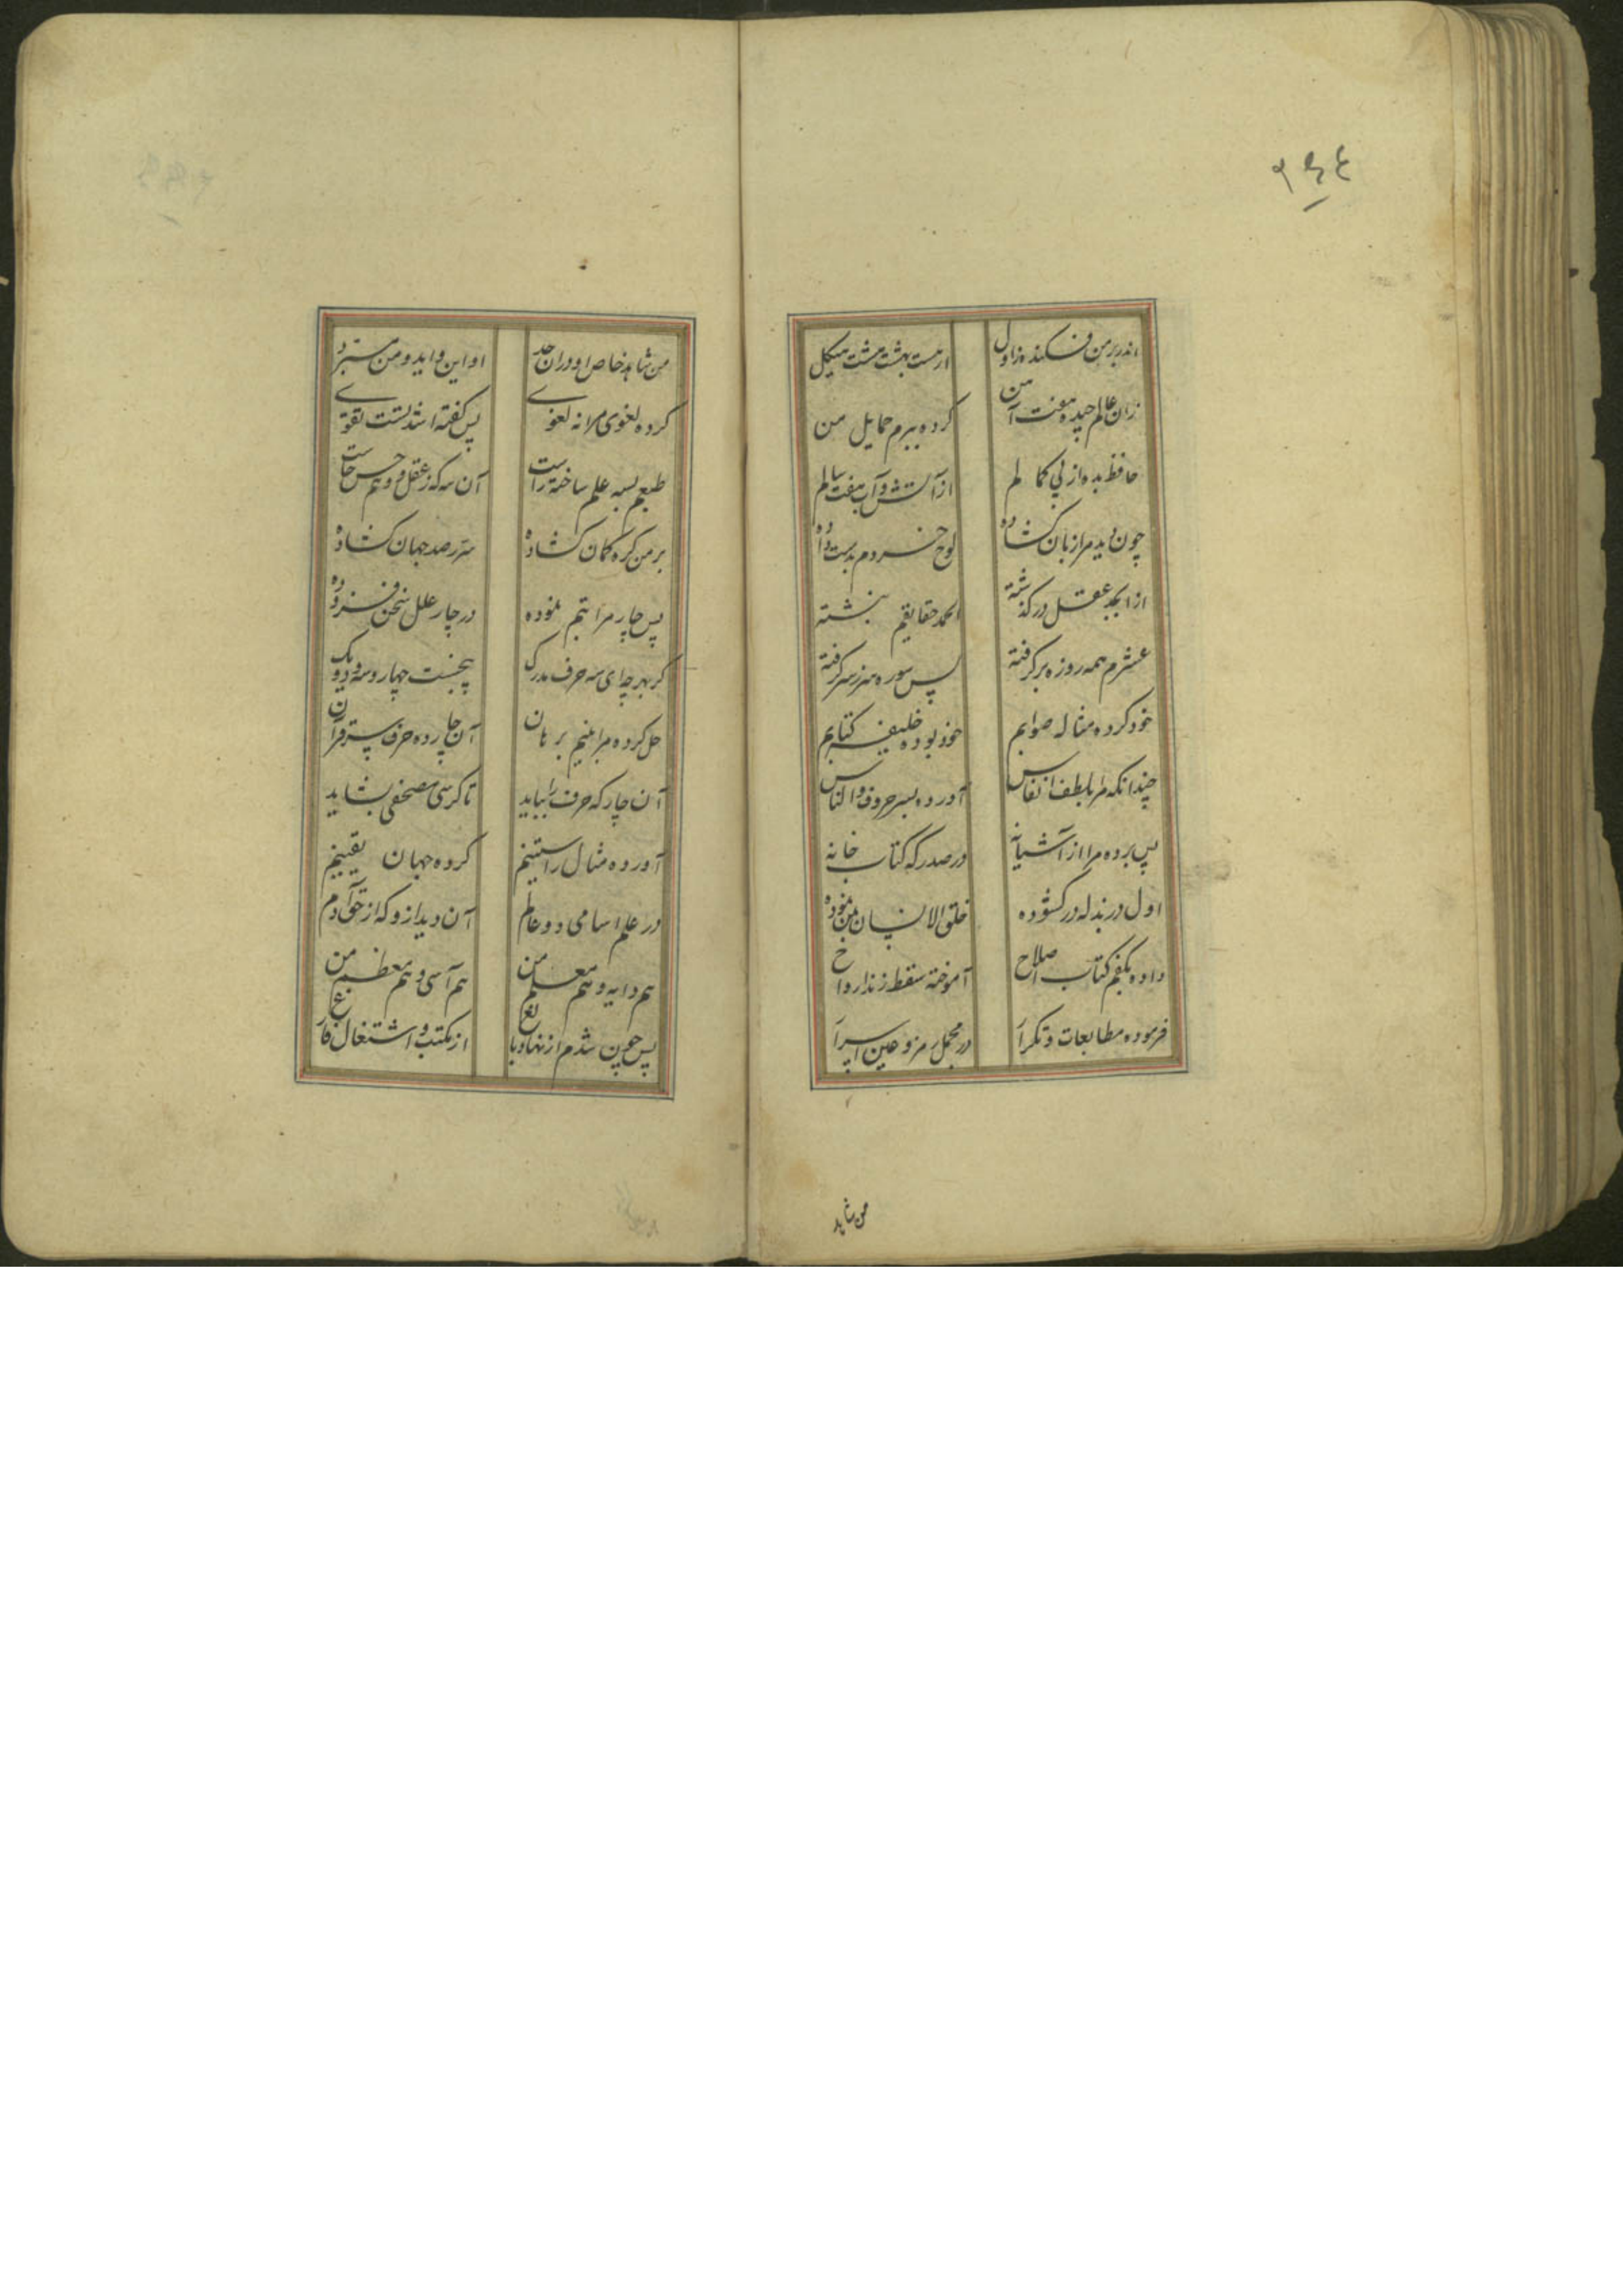 ۲۶۴
اندر بر من فکنده ز اول از هشت بهشت هشت هیکل
زان عالم چیده هفت آ من کرده ببرم حمایل من
حافظ بده از پی کمالم از آتش و آب هفت سالم
چون دید مرا زبان کشاده لوح خردم بدست داده
از ابجد عقل در گذشته الحمد حقایقم نبشته
عشرم همه روزه برگرفته پس سوره سر ز سر گرفته
خود کرده مثاله صوابم خود بوده خلیفه کتابم
چندانکه مرا بلطف انفاس آورده بسر حروف والناس
پس برده مرا از آشیانه در صدر که کتاب خانه
اول در بذله در کشوده خلق الانسان بمن نموده
داده بکفم کتاب اصلاح آموخته سقط زند ارواح
فرموده مطالعات و تکرار در مجمل رمز و عین اسرار
من شاهد
من شاهد خاص او در ان حد او این و اید و من
کرده لغوی مرا نه لغوی پس گفته اشد لست تقوی
طبعم بسه علم ساخته راست آن سه که ز عقل و وهم و حس خاست
بر من کره کمان کشاده سر رصد جهان کشاده
پس چار مراتبم نموده در چار علل سخن فزوده
کر بهر چه ای سه حرف مدرک پنجست چهار و سه و دو یک
حل کرده مرا بنیم برهان آن چارده حرف سر قرآن
آن چار که حرف را بباید تا کرسی مصحفی بشاید
آورده مثال راستینم کرده جهان یقینم
در علم اسامی دو عالم آن دید ازو که از حق آدم
هم دایه و هم معلم من هم آسی و هم معظم من
پس چون شدم از نهاد بالغ از مکتب و اشتغال فارغ